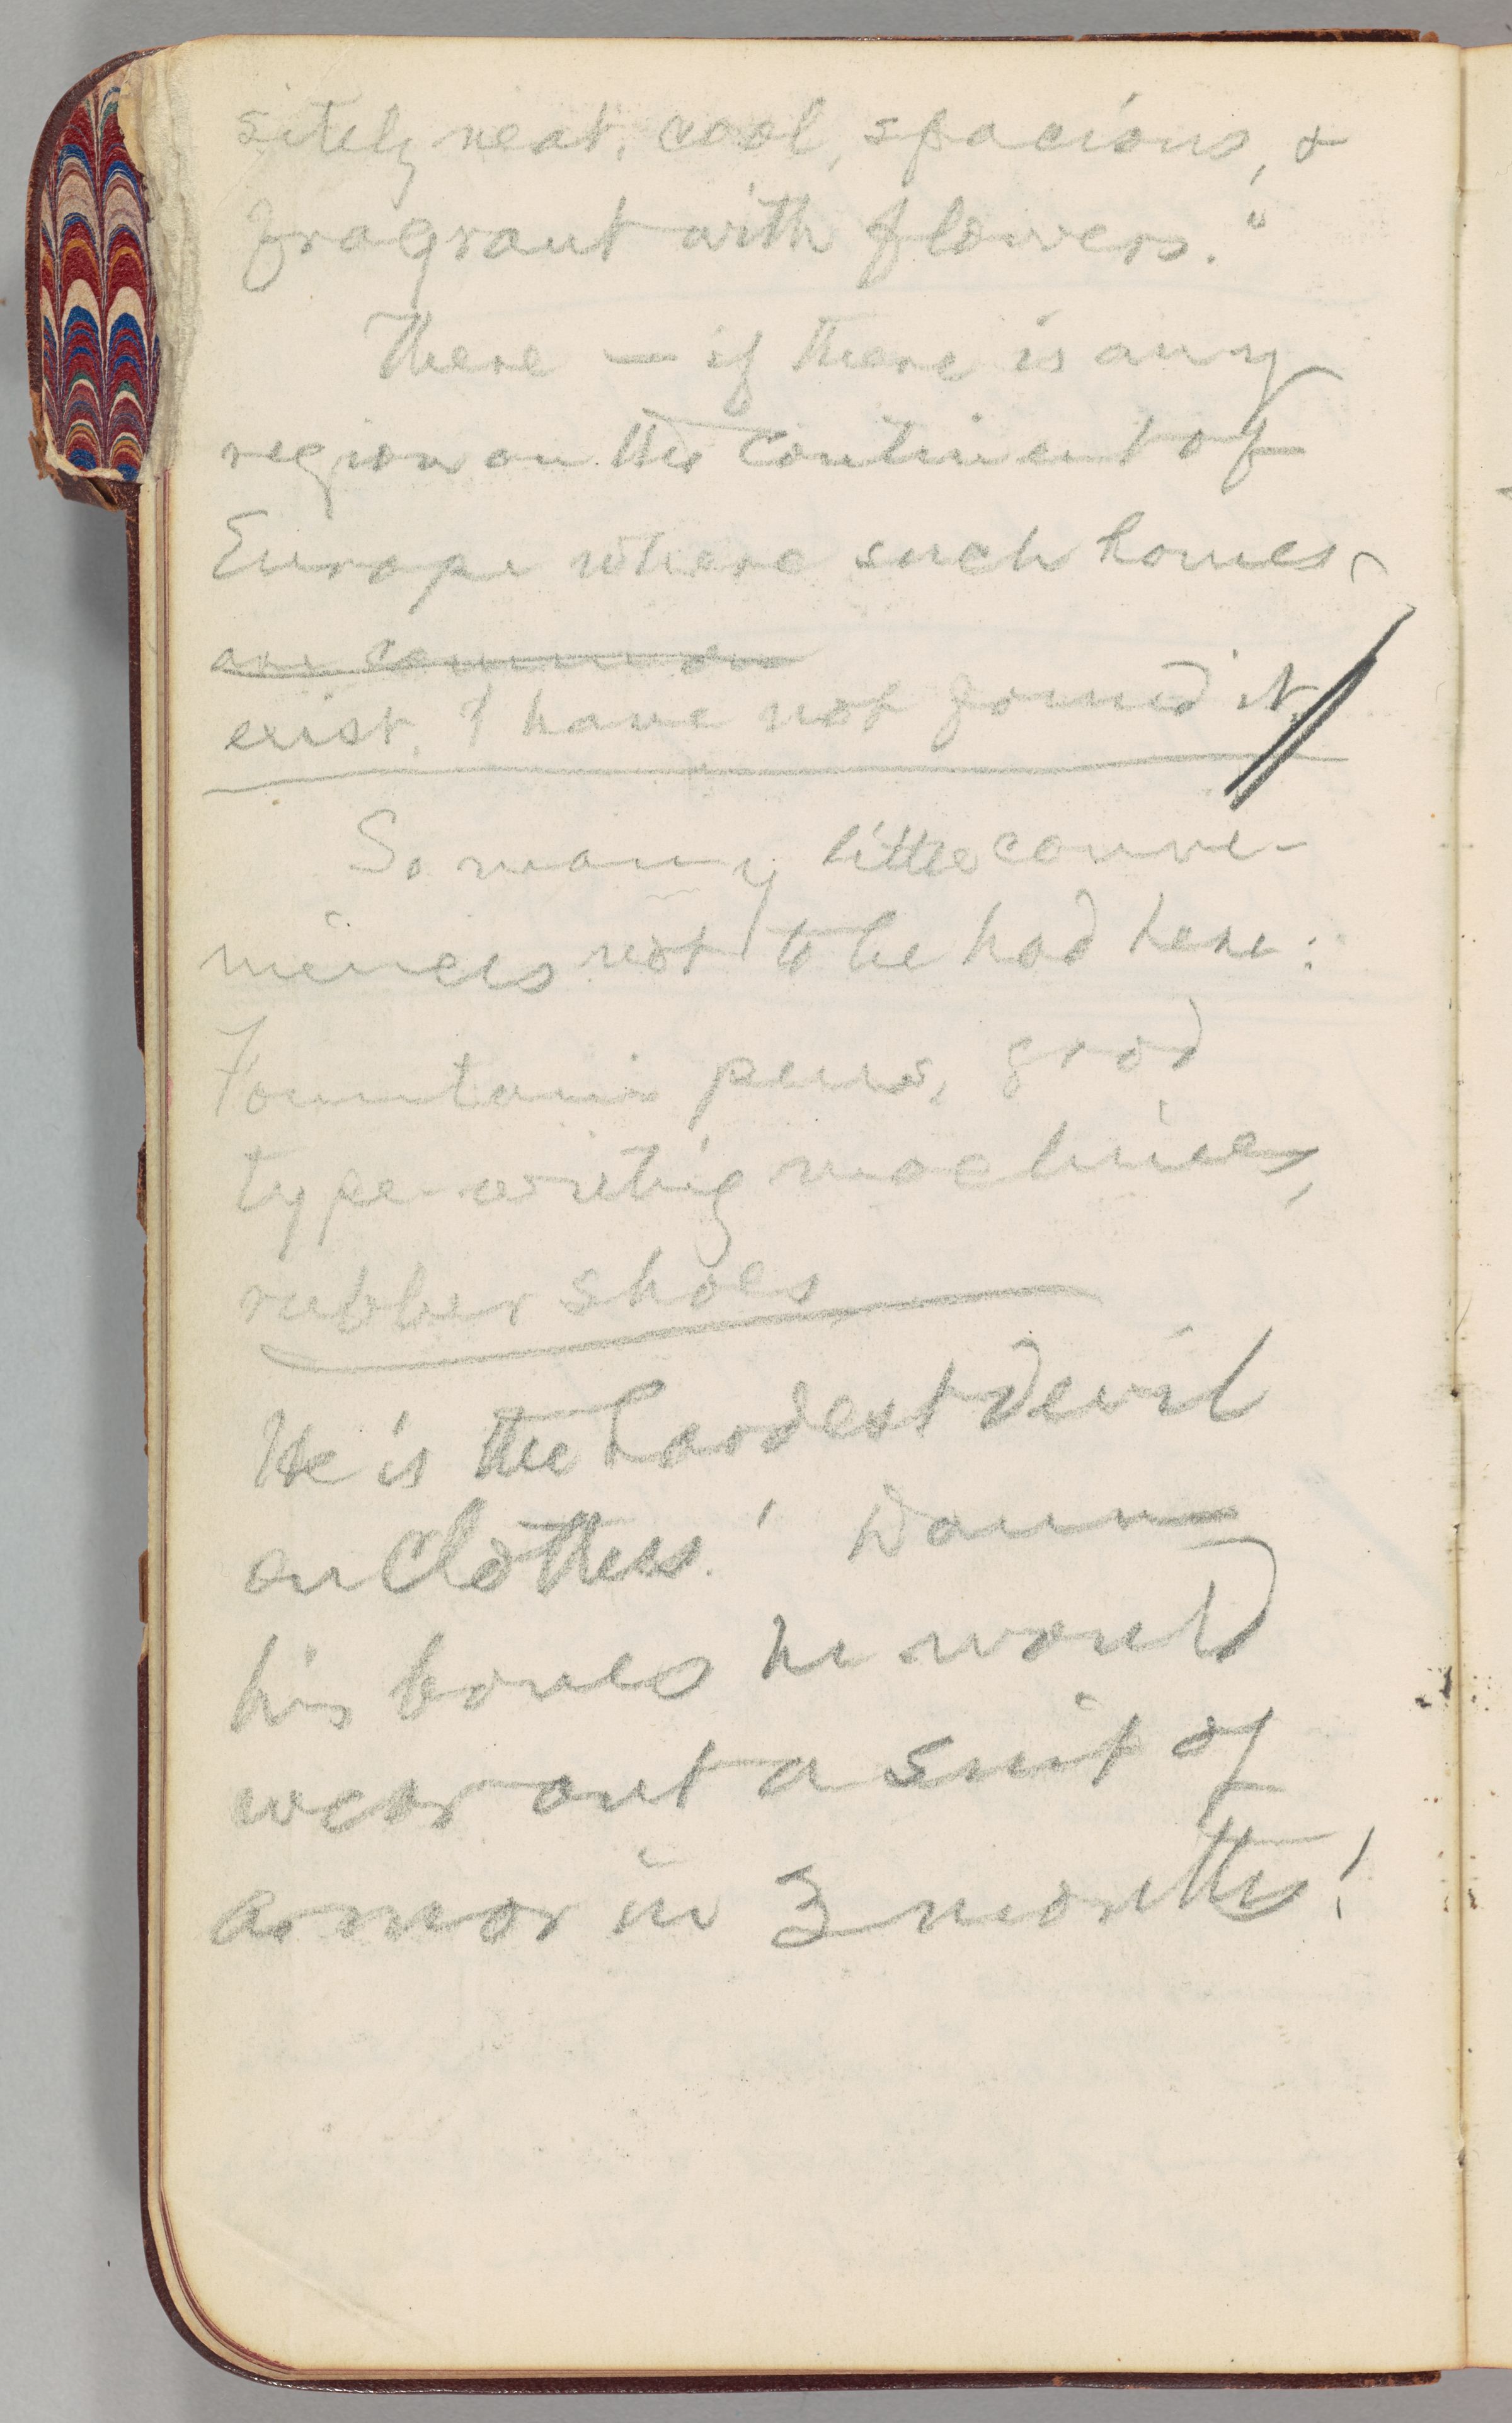 sitely neat, cool, spacious, &
fragrant with flowers."
There — if there is any
region on the continent of
Europe where such homes
are common
exist, I have not found it.
So many little conve-
niences not to be had here:
Fountain pens, good
type-writing machines,
rubber shoes
He is the hardest devil
on clothes! Damn
his bones he would
wear out a suit of
armor in 3 months!